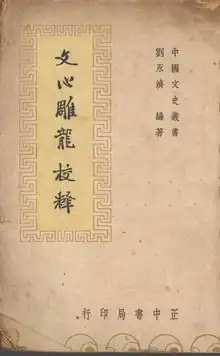 中國文史叢書
劉永濟 編著
文心雕龍校釋
正中書局印行